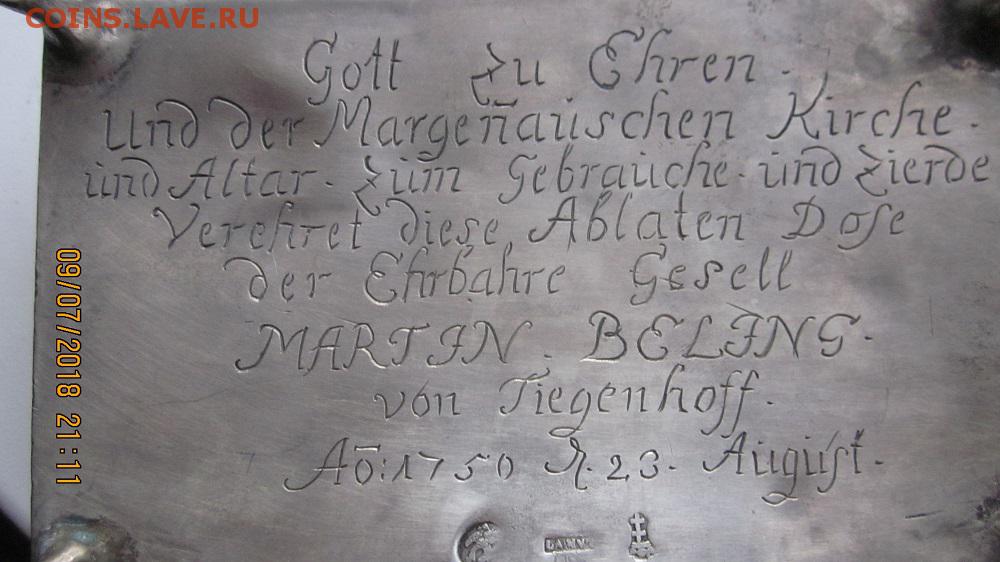 COINS.LAVE.RU
Gott zu Ehren.
Und der Margenauischen Kirche.
und Altar. zum Gebrauche. und Zierde
Verehret diese Ablaten Dose
der Ehrbahre Gesell
MARTIN. BELING.
von Tiegenhoff.
Aō: 1750 d. 23. August.
09/07/2018 21:11